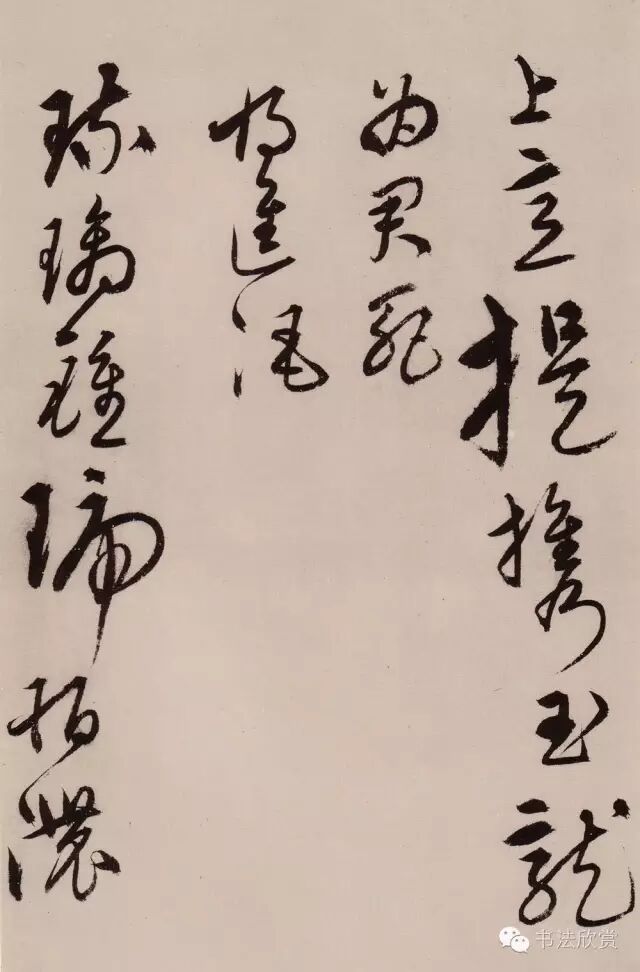 上意提攜玉龍
為君死
將進酒
琉璃鍾琥珀濃
书法欣赏